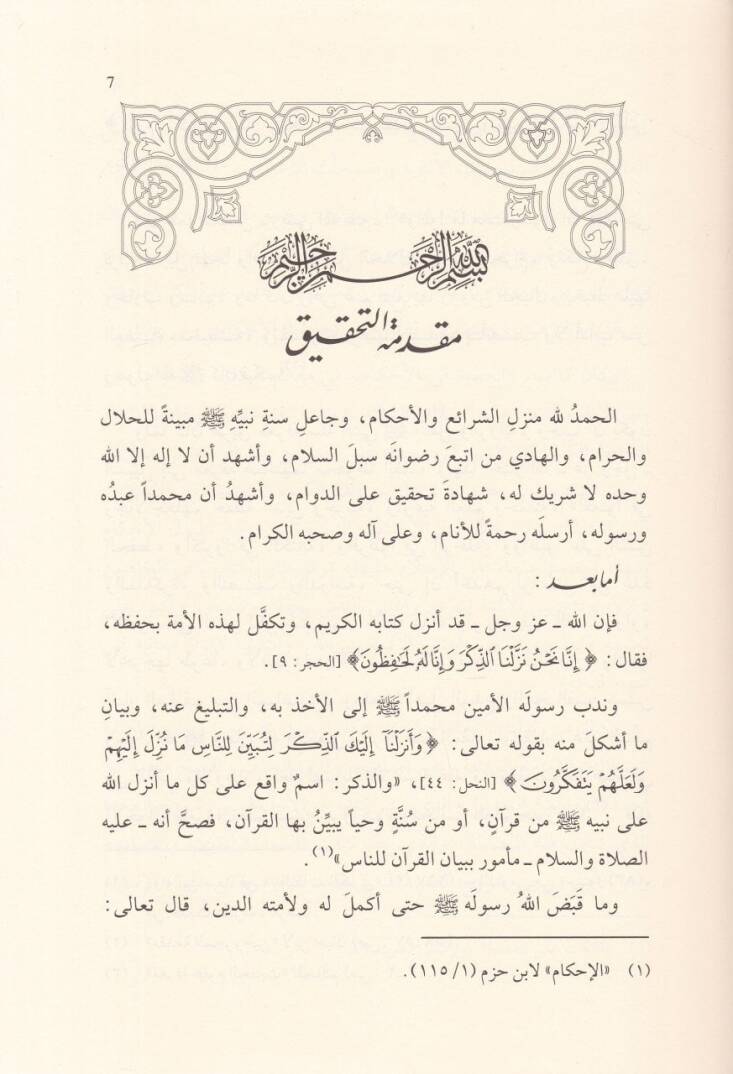 7
بسم الله الرحمن الرحيم
مقدمة التحقيق
الحمدُ لله منزلِ الشرائع والأحكام، وجاعلِ سنةِ نبيِّهِ ﷺ مبينةً للحلال
والحرام، والهادي من اتبعَ رضوانَه سبلَ السلام، وأشهد أن لا إله إلا الله
وحده لا شريك له، شهادةَ تحقيق على الدوام، وأشهدُ أن محمداً عبدُه
ورسوله، أرسلَه رحمةً للأنام، وعلى آله وصحبه الكرام.
أما بعد:
فإن الله ـ عز وجل ـ قد أنزل كتابه الكريم، وتكفَّل لهذه الأمة بحفظه،
فقال: ﴿إِنَّا نَحْنُ نَزَّلْنَا ٱلذِّكْرَ وَإِنَّا لَهُۥ لَحَٰفِظُونَ﴾ [الحجر: ٩].
وندب رسولَه الأمين محمداً ﷺ إلى الأخذ به، والتبليغ عنه، وبيانِ
ما أشكلَ منه بقوله تعالى: ﴿وَأَنزَلْنَآ إِلَيْكَ ٱلذِّكْرَ لِتُبَيِّنَ لِلنَّاسِ مَا نُزِّلَ إِلَيْهِمْ
وَلَعَلَّهُمْ يَتَفَكَّرُونَ﴾ [النحل: ٤٤]، «والذكر: اسمٌ واقع على كل ما أنزل الله
على نبيه ﷺ من قرآنٍ، أو من سُنَّةٍ وحياً يبيِّنُ بها القرآن، فصحَّ أنه ـ عليه
الصلاة والسلام ـ مأمور ببيان القرآن للناس»(١).
وما قَبَضَ اللهُ رسولَه ﷺ حتى أكملَ له ولأمته الدين، قال تعالى:
(١) «الإحكام» لابن حزم (١/ ١١٥).